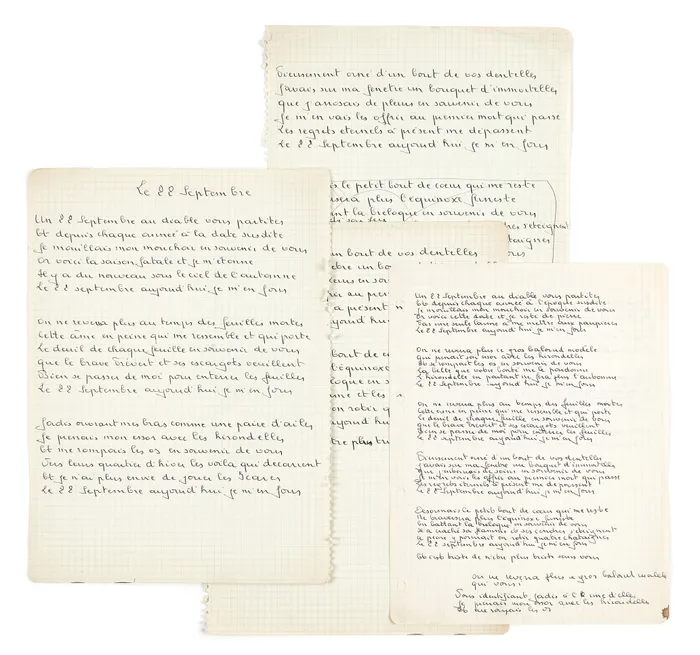 Le 22 Septembre
Un 22 Septembre au diable vous partites
Et depuis chaque année à la date susdite
Je mouillais mon mouchoir en souvenir de vous
Or voici la saison fatale et je m'étonne
Il y a du nouveau sous le ciel de l'automne
Le 22 septembre aujourd hui je m'en fous
On ne reverra plus au temps des feuilles mortes
Cette âme en peine qui me ressemble et qui porte
Le deuil de chaque feuille en souvenir de vous
que le brave Prévert et ses escargots veuillent
Bien se passer de moi pour enterrer les feuilles
Le 22 Septembre aujourd hui je m'en fous
Jadis ouvrant mes bras comme une paire d'ailes
Je prenais mon essor avec les hirondelles
Et me rompais les os en souvenir de vous
Vers leurs quartiers d'hiver les voilà qui
Et je n'ai plus envie de jouer les Icares
Le 22 Septembre aujourd hui je m'en fous
Pieusement orné d'un bout de vos dentelles
J'avais sur ma fenetre un bouquet d'immortelles
que j'arrosais de pleurs en souvenir de vous
Je m'en vais les offrir au premier mort qui passe
Les regrets eternels à présent me depassent
Le 22 Septembre aujourd hui je m'en fous
le petit bout de cœur qui me reste
plus l'equinoxe funeste
la breloque en souvenir de vous
s'eteignent
un bout de vos dentelles
un bo
au pren
à présent m
bout de c
l'équinox
en s
et les
on rotir q
jourd hu
tre plus tri
Un 22 Septembre au diable vous partites
Et depuis chaque année à l'époque susdite
Je mouillais mon mouchoir en souvenir de vous
Or voici cette date et je reste de pierre
Pas une seule larme à me mettre aux paupières
Le 22 Septembre aujourd'hui je m'en fous
On ne reverra plus ce gros balourd modèle
qui prenait son essor avec les hirondelles
les os en souvenir de vous
La belle que voulez vous me le pardonne
L'hirondelle en partant ne fera plus l'automne
Le 22 Septembre aujourd hui je m'en fous
On ne reverra plus au temps des feuilles mortes
Cette âme en peine qui me ressemble et qui porte
Le deuil de chaque feuille en souvenir de vous
que le brave Prévert et ses escargots veuillent
Bien se passer de moi pour enterrer les feuilles
Le 22 septembre aujourd hui je m'en fous
Pieusement orné d'un bout de vos dentelles
J'avais sur ma fenetre un bouquet d'immortelles
que j'arrosais de pleurs en souvenir de vous
Je m'en vais les offrir au premier mort qui passe
Les regrets éternels à présent me dépassent
Le 22 septembre aujourd hui je m'en fous
Désormais le petit bout de cœur qui me reste
Ne traversera plus l'équinoxe funeste
En battant la breloque en souvenir de vous
Il a craché sa flamme et ses cendres s'éteignent
A peine y pourrait on rotir quatre chataignes
Le 22 septembre aujourd hui je m'en fous
Et c'est triste de n'être plus triste sans vous
On ne reverra plus ce gros balourd modèle
qui vous
jadis à d'elles
Je prenais mon essor avec les hirondelles
Et me les os